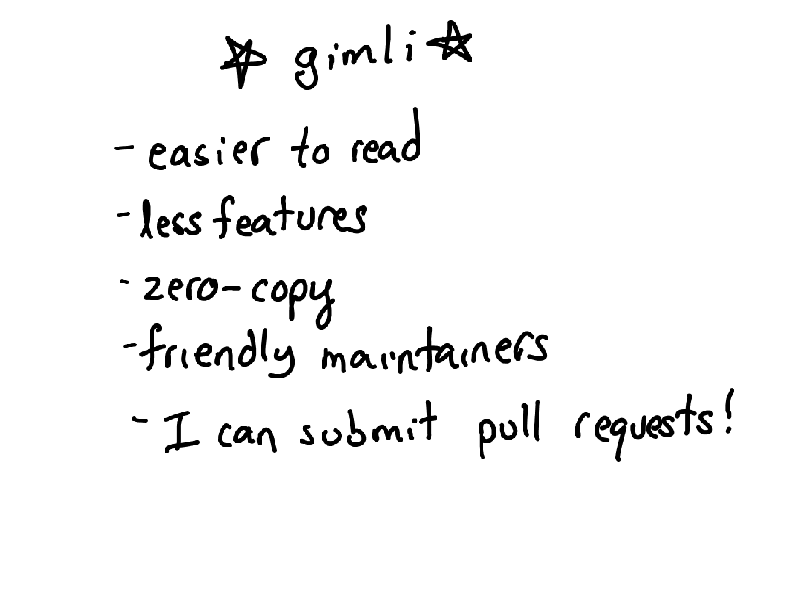 ☆ gimli ☆
- easier to read
- less features
- zero-copy
- friendly maintainers
- I can submit pull requests!